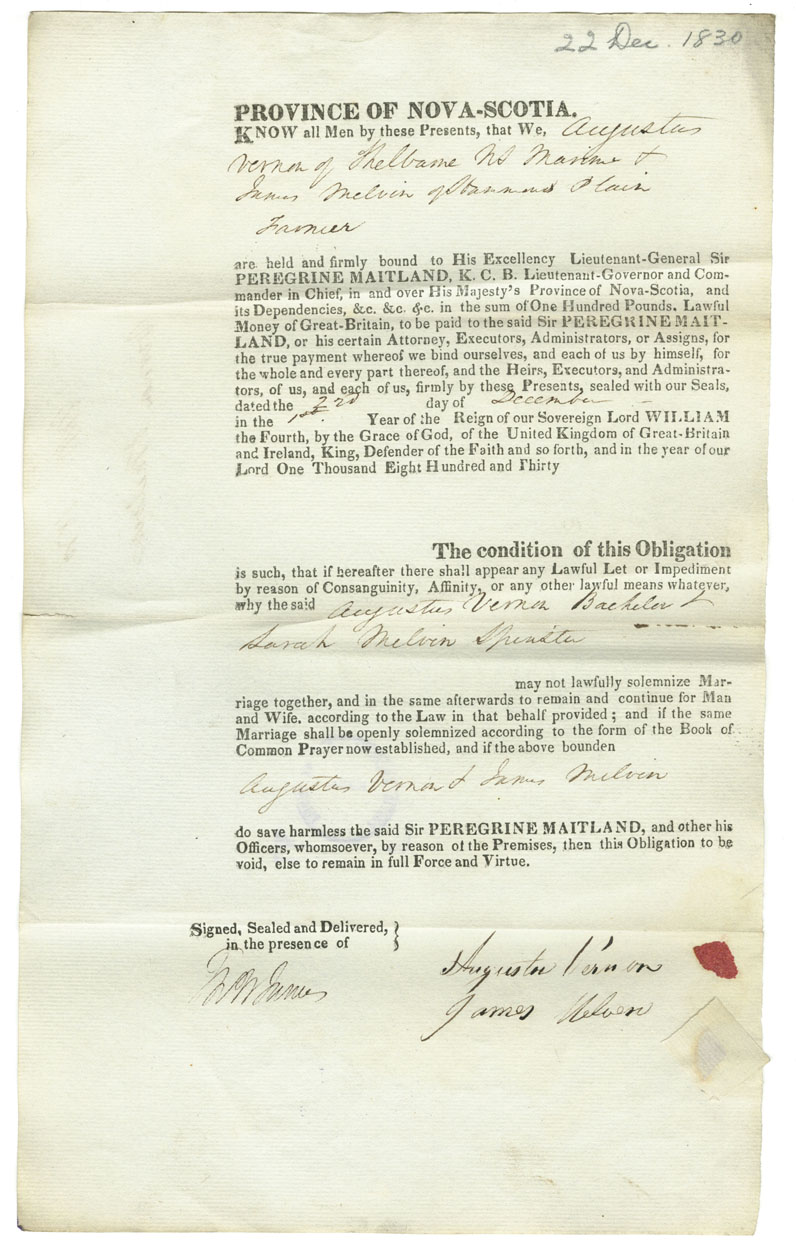 22 Dec. 1830
PROVINCE OF NOVA-SCOTIA.
KNOW all Men by these Presents, that We, Augustus
Vernon of Shelburne NS &
James Melvin of Hammonds Plain
Farmer
are held and firmly bound to His Excellency Lieutenant-General Sir
PEREGRINE MAITLAND, K. C. B. Lieutenant-Governor and Com-
mander in Chief, in and over His Majesty's Province of Nova-Scotia, and
its Dependencies, &c. &c. &c. in the sum of One Hundred Pounds. Lawful
Money of Great-Britain, to be paid to the said Sir PEREGRINE MAIT-
LAND, or his certain Attorney, Executors, Administrators, or Assigns, for
the true payment whereof we bind ourselves, and each of us by himself, for
the whole and every part thereof, and the Heirs, Executors, and Administra-
tors, of us, and each of us, firmly by these Presents, sealed with our Seals,
dated the 22d day of December
in the 1st. Year of the Reign of our Sovereign Lord WILLIAM
the Fourth, by the Grace of God, of the United Kingdom of Great-Britain
and Ireland, King, Defender of the Faith and so forth, and in the year of our
Lord One Thousand Eight Hundred and Thirty
The condition of this Obligation
is such, that if hereafter there shall appear any Lawful Let or Impediment
by reason of Consanguinity, Affinity, or any other lawful means whatever,
why the said Augustus Vernon Bachelor &
Sarah Melvin Spinster
may not lawfully solemnize Mar-
riage together, and in the same afterwards to remain and continue for Man
and Wife. according to the Law in that behalf provided ; and if the same
Marriage shall be openly solemnized according to the form of the Book of
Common Prayer now established, and if the above bounden
Augustus Vernon & James Melvin
do save harmless the said Sir PEREGRINE MAITLAND, and other his
Officers, whomsoever, by reason of the Premises, then this Obligation to be
void, else to remain in full Force and Virtue.
Signed, Sealed and Delivered,
in the presence of
James
Augustus Vernon
James Melven